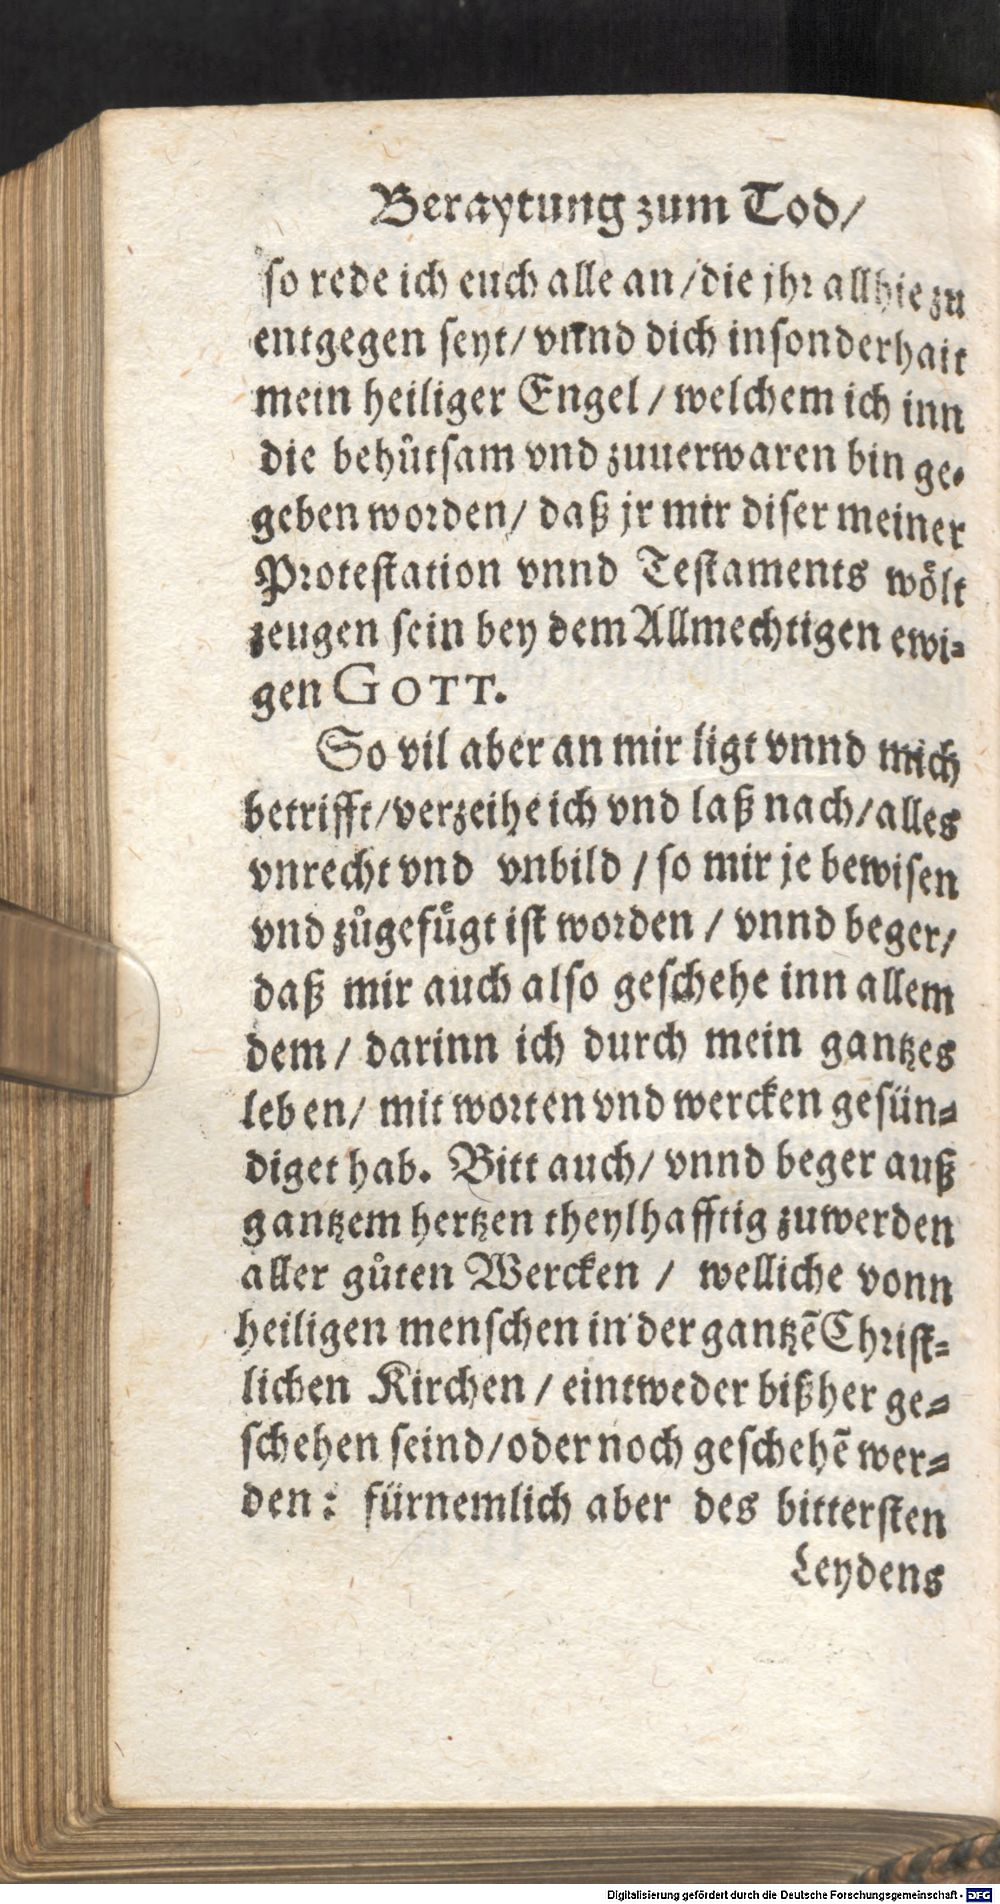 Beraytung zum Tod/
so rede ich euch alle an/die jhr allhie zu
entgegen seyt/ vnnd dich insonderhait
mein heiliger Engel / welchem ich inn
die behuͤtsam vnd zuuerwaren bin ge-
geben worden/ daß jr mir diser meiner
Protestation vnnd Testaments woͤlt
zeugen sein bey dem Allmechtigen ewi-
gen GOTT.
So vil aber an mir ligt vnnd mich
betrifft/verzeihe ich vnd laß nach/alles
vnrecht vnd vnbild / so mir je bewisen
vnd zůgefuͤgt ist worden / vnnd beger/
daß mir auch also geschehe inn allem
dem/ darinn ich durch mein gantzes
leben/ mit worten vnd wercken gesün-
diget hab. Bitt auch/ vnnd beger auß
gantzem hertzen theylhafftig zuwerden
aller gůten Wercken / welliche vonn
heiligen menschen in der gantzẽ Christ-
lichen Kirchen / eintweder bißher ge-
schehen seind/oder noch geschehẽ wer-
den: fürnemlich aber des bittersten
Leydens
Digitalisierung gefördert durch die Deutsche Forschungsgemeinschaft - DFG